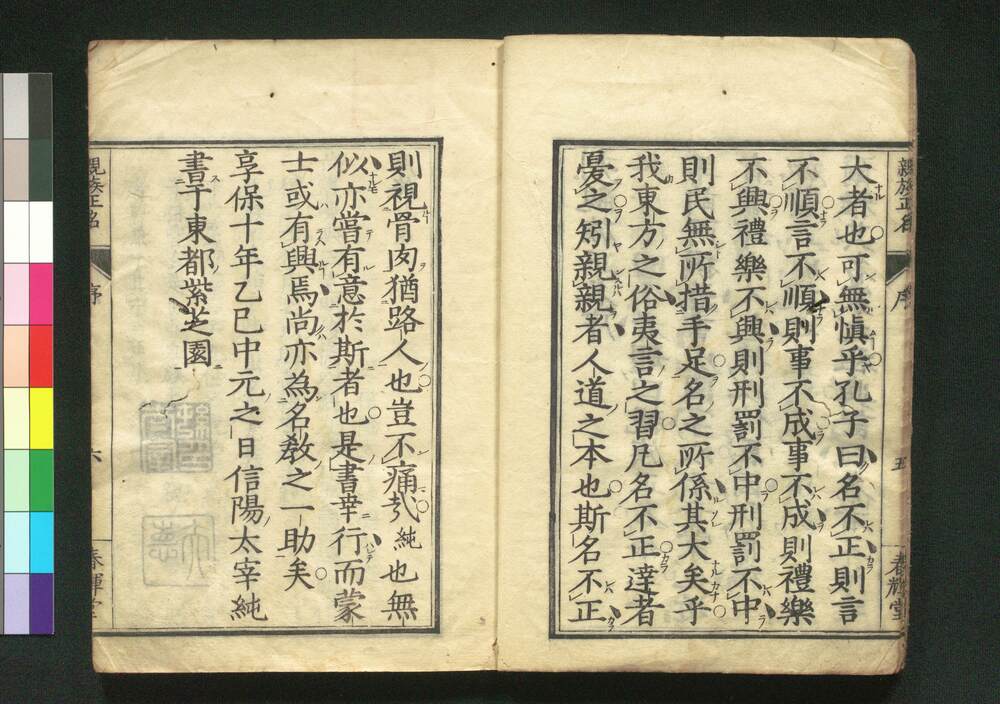 大者也可無愼乎孔子曰名不正則言
不順言不順則事不成事不成則禮樂
不興禮樂不興則刑罰不中刑罰不中
則民無所措手足名之所係其大矣乎
我東方之俗夷言之習凡名不正達者
憂之矧親親者人道之本也斯名不正
親族正名
序
五
春輝堂
則視骨肉猶路人也豈不痛哉純也無
似亦嘗有意於斯者也是書幸行而蒙
士或有興焉尚亦為名教之一助矣
享保十年乙巳中元之日信陽太宰純
書于東都紫芝園
親族正名
序
六
春輝堂